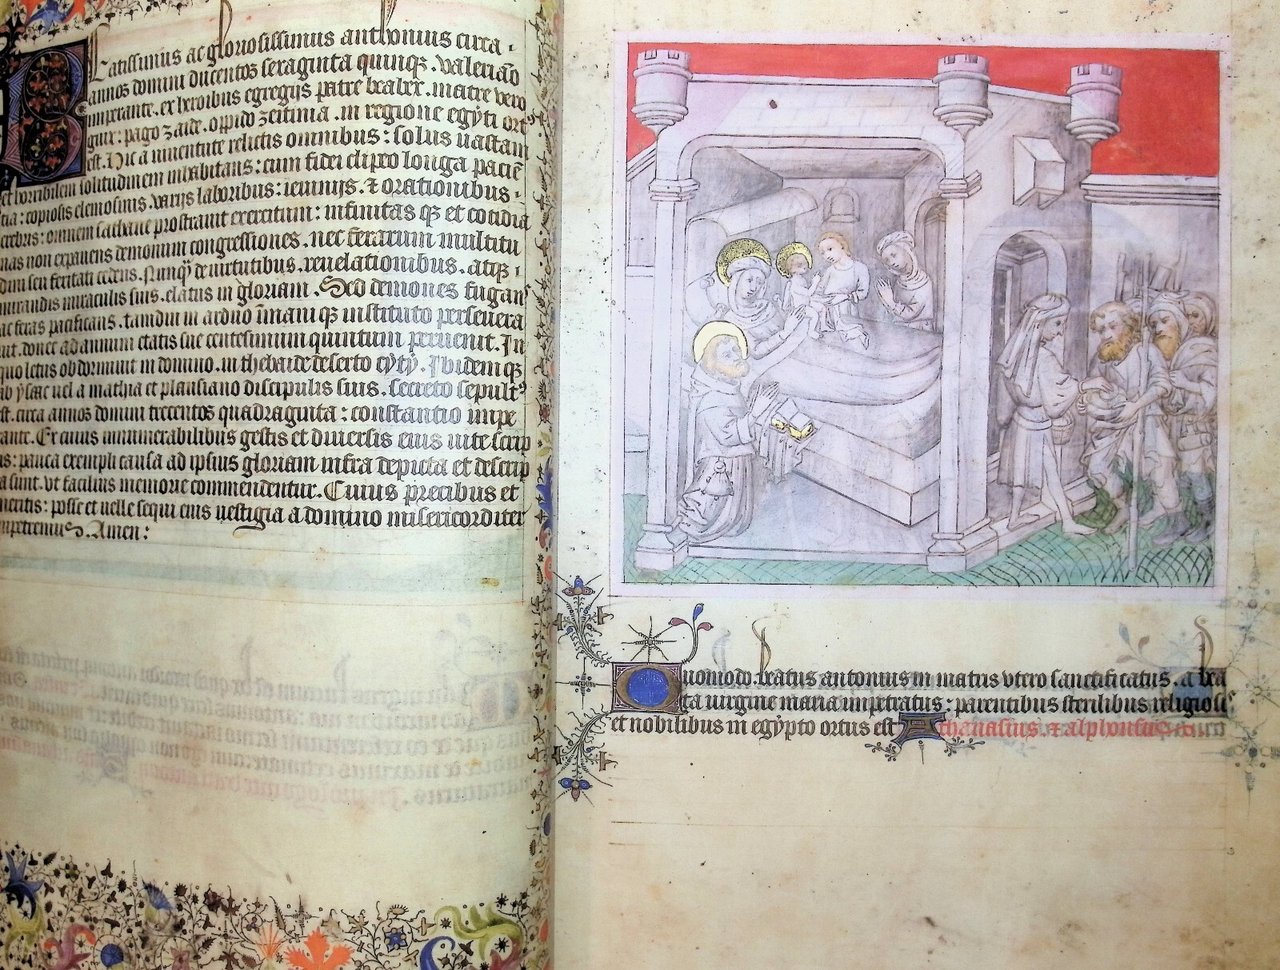 Beatissimus ac gloriosissimus anthonius circa
annos domini ducentos sexaginta quinqʒ. valeriāo
imperante. ex heroibus egregijs patre beabex. matre vero
giut: pago zaide. oppido zeitinia. in regione egypti ort⁹
est. Hic a iuuentute relictis omnibus: solus uastam
et horribilem solitudinem inhabitans: cum fidei clipeo longa pacien
tia: copiosis elemosinis. varijs laboribus: ieiunijs. ⁊ orationibus
crebris: omnem sathane prostrauit exercitum: infinitas qʒ et cotidia
nas non expauens demonum congressiones. nec ferarum multitu
dini seu feritati cedens. Nunqʒ de uirtutibus. reuelationibus. atqʒ
mirandis miraculis suis. elatus in gloriam. Sed demones fugans
ac feras pacificans. tamdiu in arduo
instituto perseuera
uit. donec ad annum etatis sue centesimum quintum peruenit. In
quo letus obdormiuit in domino. in thebaide deserto
Ibidemqʒ
ab ysaac uel a mathia et plausiano discipulis suis. secreto sepult⁹
est. circa annos domini trecentos quadraginta: constantio impe
rante. Ex cuius innumerabilibus gestis et diuersis eius uite scrip
tis: pauca exempli causa ad ipsius gloriam infra depicta et descrip
ta sunt. vt facilius memorie commendentur. Cuius precibus et
meritis: posse et uelle sequi eius uestigia a domino misericorditer
inpetremus. Amen:
Quomodo beatus antonius in matris vtero sanctificatus. a bea
ta uirgine maria impetratus: parentibus sterilibus religiosis
et nobilibus in egypto ortus est Athanasius. ⁊ alphonsus